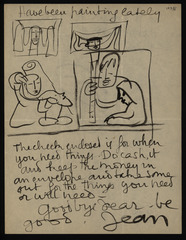 Have been painting lately
The check enclosed is for when
you need things. Do cash it
and keep the money in
an envelope and take some
out for the things you need
or will need.
Goodbye dear - be
good
Jean